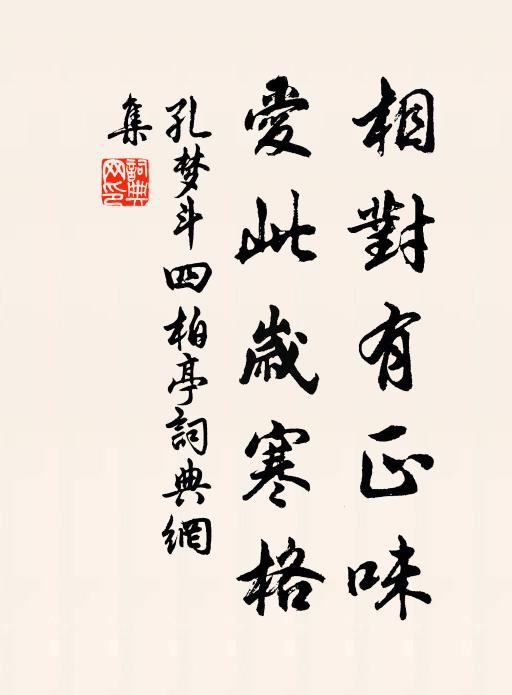 相對有正味
愛此歲寒格
孔梦斗四柏亭詞典網
集
詞典網印